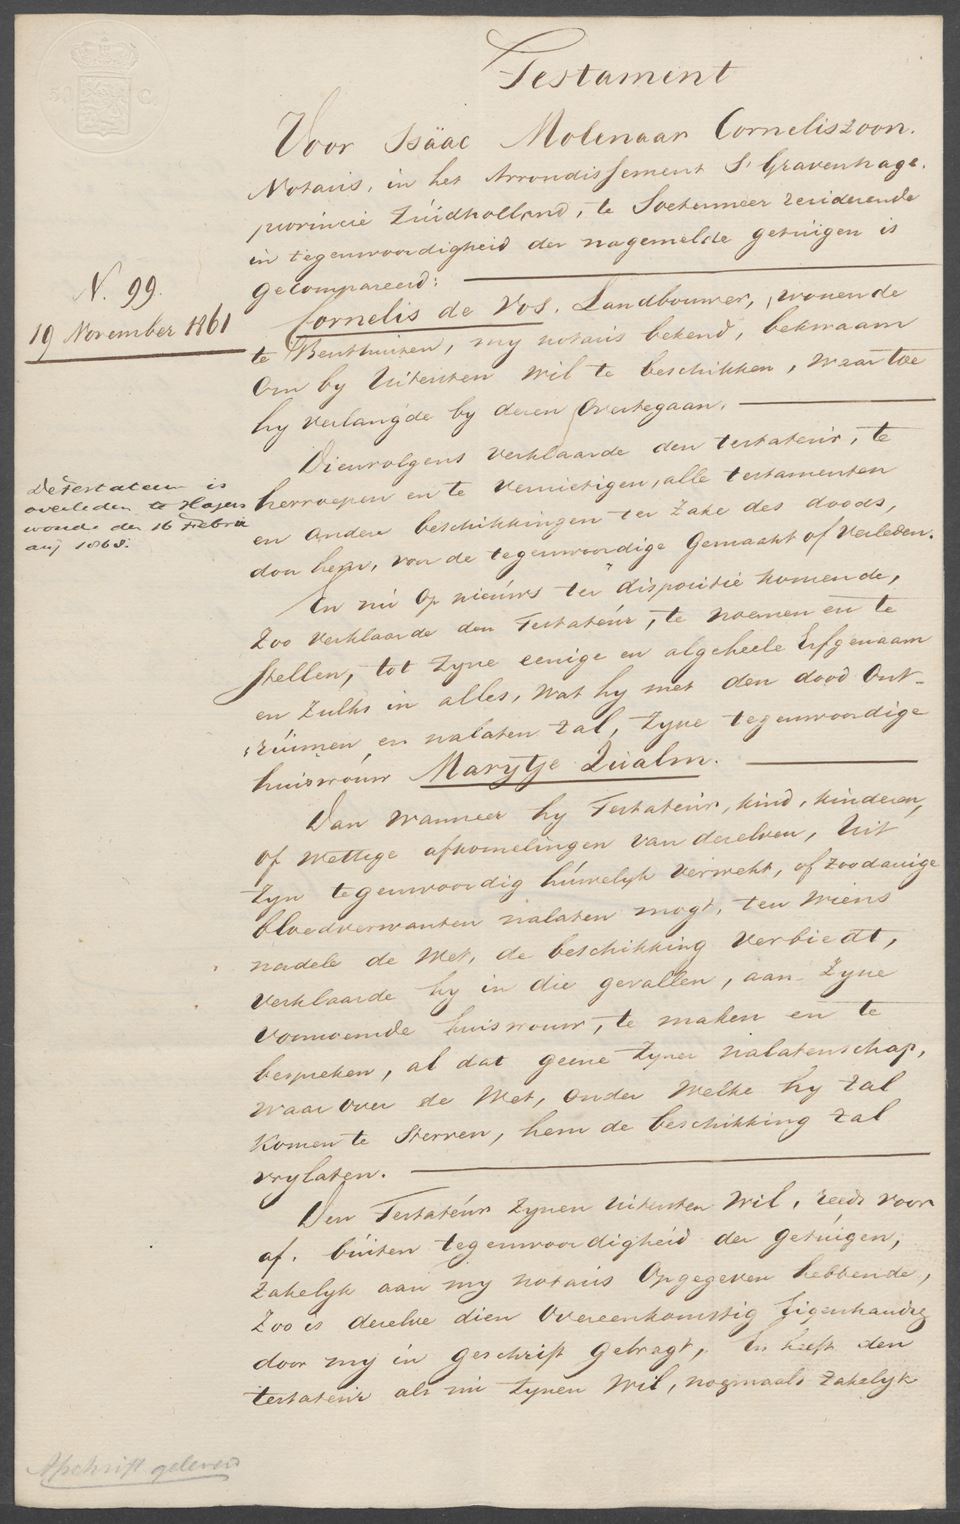 Testament
Voor Isäac Molenaar Corneliszoon.
Notaris, in het Arrondissement S' Gravenhage.
provincie Zúidholland, te Soetermeer resideerende
in tegenwoordigheid der nagemelde getúigen is
gecompareerd:
N. 99.
19 November 1861
Cornelis de Vos, Landbouwer, wonende
te Benthuizen, my notaris bekend, bekwaam
om by Uitersten wil te beschikken, waartoe
hy verlangde by dezen overtegaan.
Dienvolgens verklaarde den testateúr, te
herroepen en te vernietigen, alle testamenten
en andere beschikkingen ter zake des doods,
door hem, voor de tegenwoordige gemaakt of verleden.
De Testateur is
overleden te Hazers
woude den 16 Febru
arij 1868.
En nú op nieúws ter dispositie komende,
Zoo verklaarde den Testateúr, te noemen en te
stellen, tot zyne eenige en algeheele Erfgenaam
en zulks in alles, wat hy met den dood ont-
rúimen en nalaten zal, zyne tegenwoordige
huisvrouw Marytje Qualm.
Dan wanneer hy Testateúr, kind, kinderen,
of wettige afkomelingen van dezelven, Uit
zyn tegenwoordig húwelyk verwekt, of zoodanige
bloedverwanten nalaten mogt, ten wiens
nadele de Wet, de beschikking verbiedt,
verklaarde hy in die gevallen, aan zyne
voornoemde huisvrouw, te maken en te
bespreken, al dat geene zyner nalatenschap,
waar over de Wet, onder welke hy zal
komen te sterven, hem de beschikking zal
vrylaten.
Den Testateúr zynen Uitersten Wil, reeds voor
af, búiten tegenwoordigheid der getúigen,
zakelyk aan my notaris opgegeven hebbende,
Zoo is dezelve dien overeenkomstig Eigenhandig
door my in geschrift gebragt, En heeft den
testateúr als nú zynen Wil, nogmaals zakelyk
Afschrift geleverd